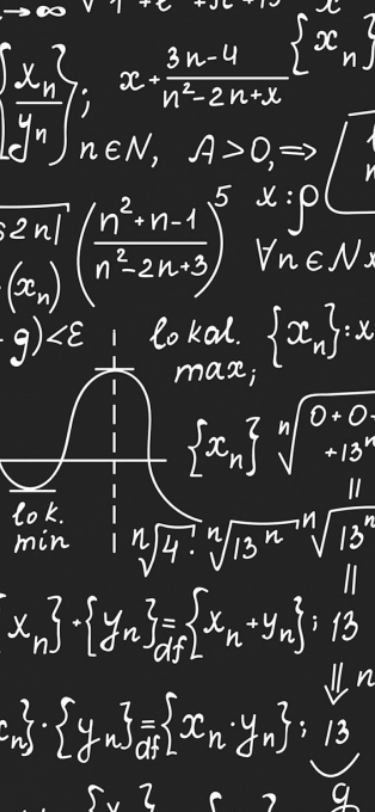 →∞
{xₙ/yₙ}; x + (3n-4)/(n²-2n+x) {xₙ}
n∈N, A>0, ⇒
2n| ((n²+n-1)/(n²-2n+3))⁵ x:p
(xₙ) ∀n∈N x
g)<ε lokal. {xₙ}:x
max;
{xₙ} ⁿ√0+0
+13ⁿ
||
lok. min
ⁿ√4 · ⁿ√13ⁿ ⁿ√13ⁿ
||
xₙ}+{yₙ}=df{xₙ+yₙ}; 13
⇓ n
xₙ}·{yₙ}=df{xₙ·yₙ}; 13
g